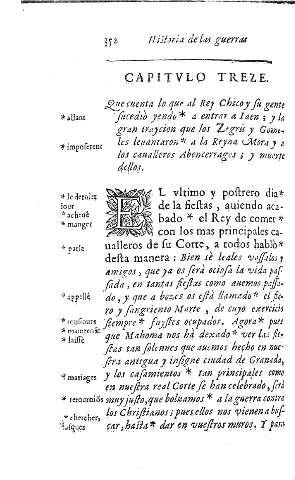 352 Historia de las guerras
CAPITVLO TREZE.
Que cuenta lo que al Rey Chico y su gente
* allant
sucediò yendo * a entrar a Iaen; y la
gran traycion que los Zegris y Gome-
* imposerent
les leuantaron * a la Reyna Mora y a
los caualleros Abencerrages; y muerte
dellos.
* le dernier
jour
* achevé
* manger
EL vltimo y postrero dia *
de la fiestas, auiendo aca-
bado * el Rey de comer *
con los mas principales ca-
* parla
ualleros de su Corte, a todos hablò *
desta manera: Bien sè leales vassallos y
amigos, que ya os serà ociosa la vida pas-
sada, en tantas fiestas como auemos passa-
* appellé
do, y que a bozes os està llamado * el fie-
ro y sangriento Marte, de cuyo exercicio
* tousiours
siempre * fuystes ocupados. Agora * pues
* maintenant
* laissé
que Mahoma nos hà dexado * ver las fie-
stas tan solemnes que auemos hecho en nue-
stra antigua y insigne ciudad de Granada,
* mariages
y los casamientos * tan principales como
en nuestra real Corte se han celebrado, serà
* retournions
muy justo, que boluamos * a la guerra contra
* chercher,
los Christianos; pues ellos nos vienen a bus-
* jusques
çar, hasta * dar en vuestros muros. Y para